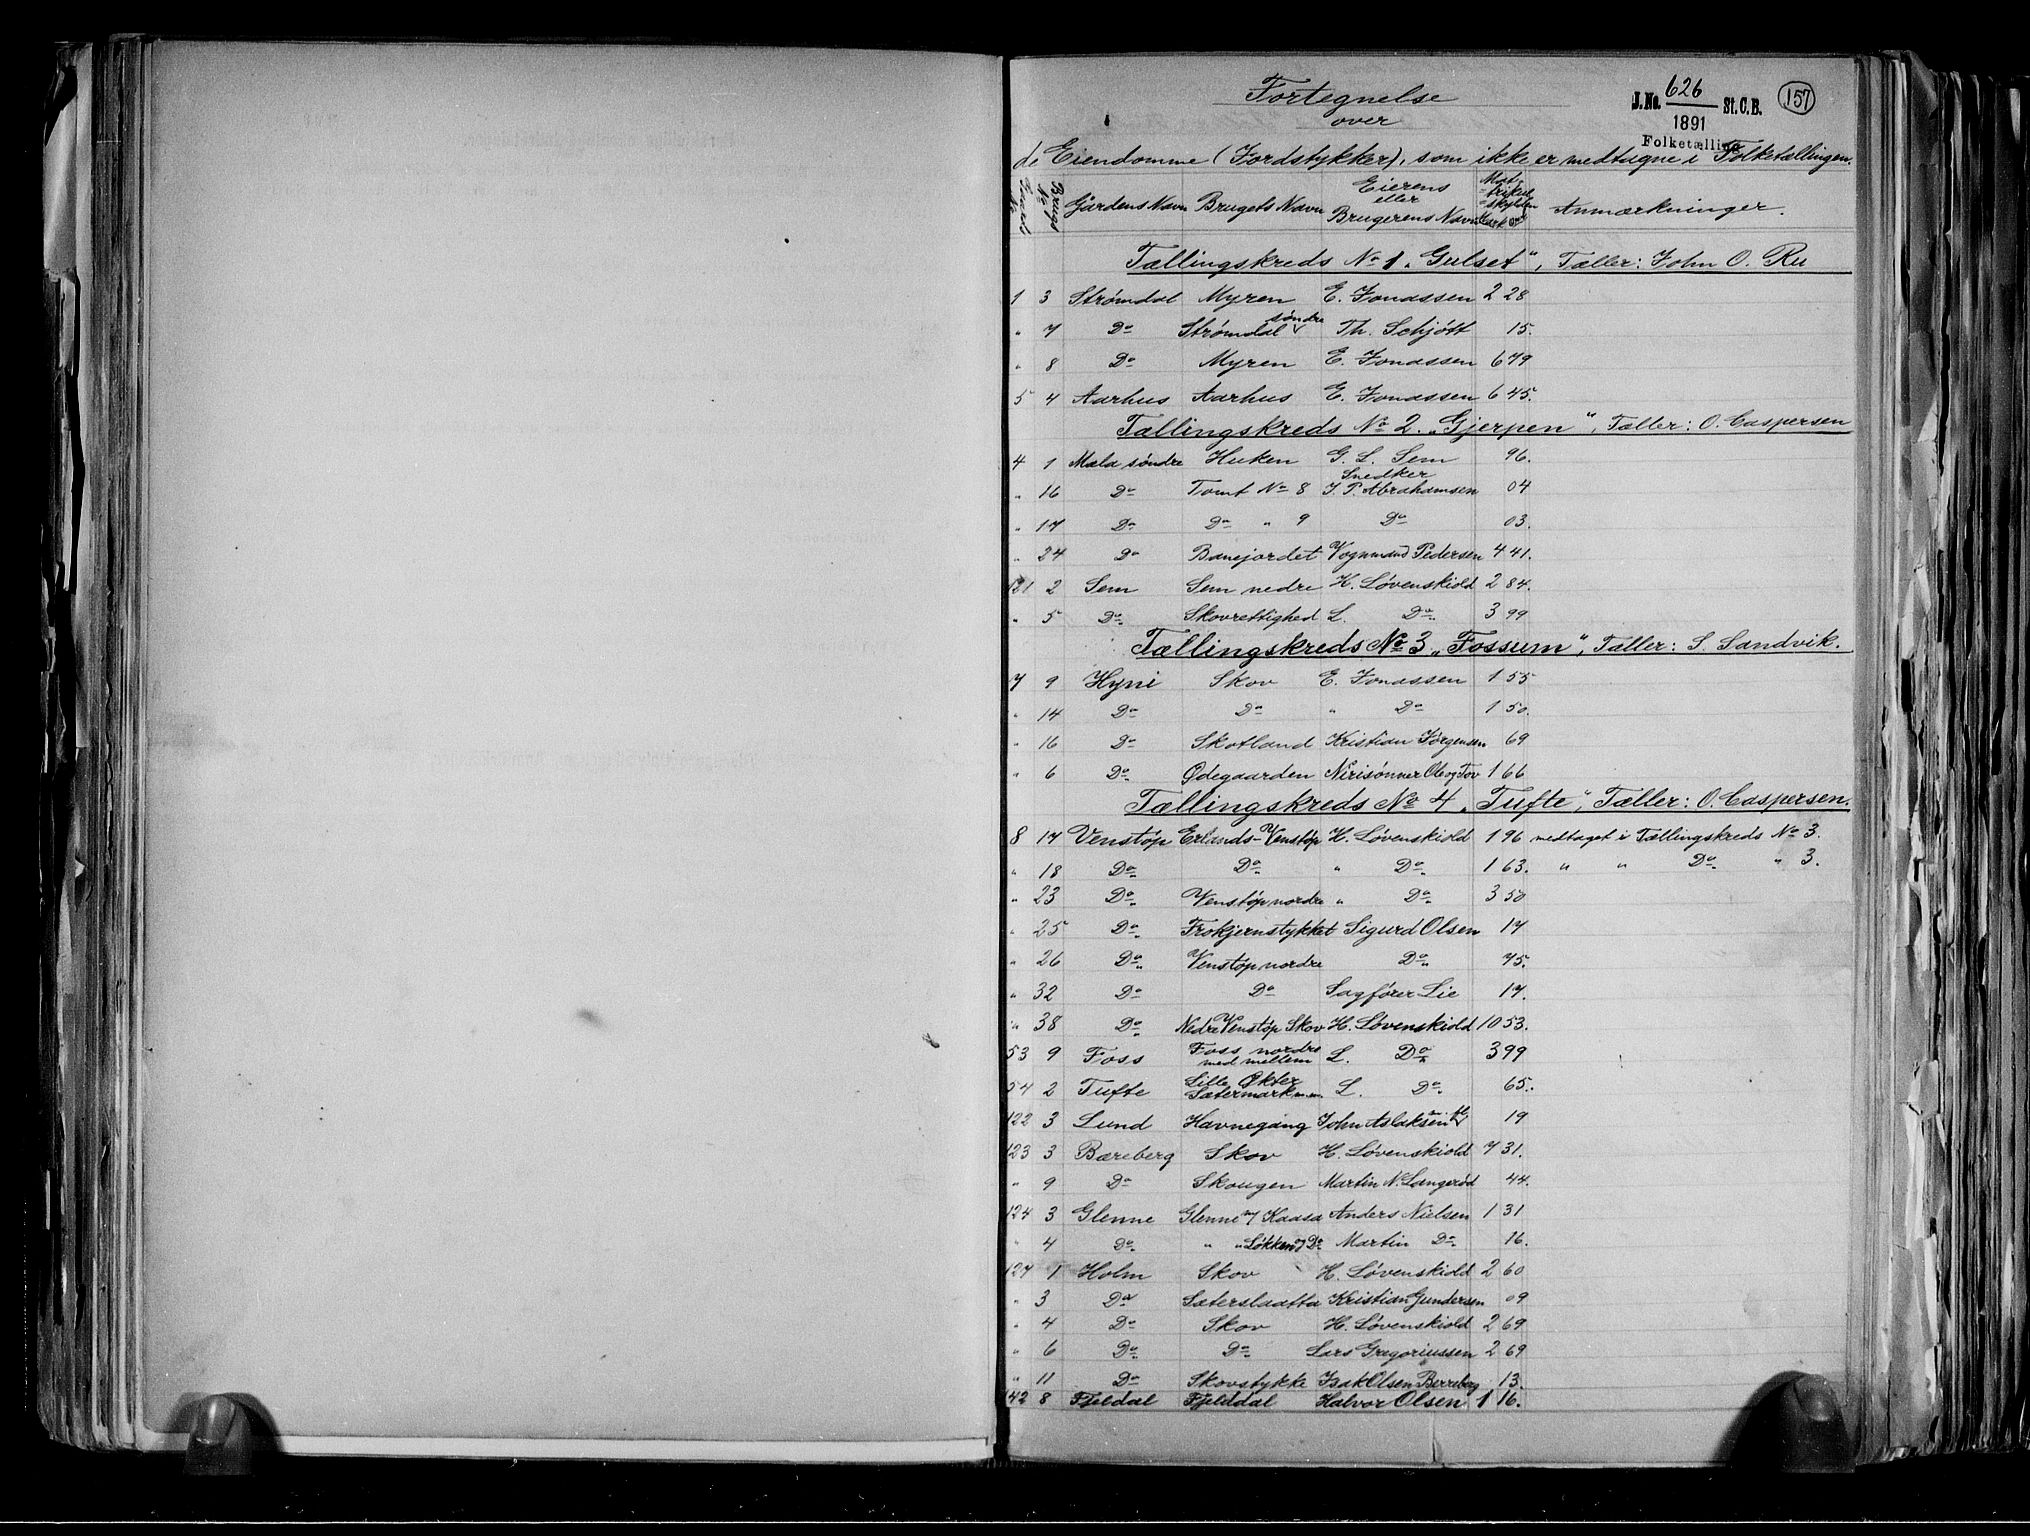 Fortegnelse
over
J.No. 626 St.C.B. 157
1891
Folketælling
de Eiendomme (Jordstykker), som ikke er medtagne i Folketællingen.
Gaards No Brugs No Gårdens Navn Brugets Navn Eierens eller Brugerens Navn Matrikulskylden Mark Øre Anmærkninger.
Tællingskreds No 1 „Gulset“, Tæller: John O. Ru
1 3 Strømdal Myren E. Jonassen 2 28
" 7 Do Strømdal søndre Th. Schjött 15.
" 8 Do Myren E. Jonassen 6 79
5 4 Aarhus Aarhus E. Jonassen 6 45.
Tællingskreds No 2. „Gjerpen“, Tæller: O. Caspersen
4 1 Mæla søndre Huken G. L. Sem 96.
" 16 Do Tomt No 8 Snedker J. P. Abrahamsen 04
" 17 Do Do " 9 Do 03.
" 24 Do Banejordet Vognmand Pedersen 4 41.
121 2 Sem Sem nedre H. Løvenskiold 2 84.
" 5 Do Skovrettighed L. Do 3 99
Tællingskreds No 3 „Fossum“, Tæller: S. Sandvik.
7 9 Hyni Skov E. Jonassen 1 55
" 14 Do Do " Do 1 50.
" 16 Do Skotland Kristian Jørgensen 69
" 6 Do Ødegaarden Nirisønner Ole og Tov 1 66
Tællingskreds No 4 „Tufte“, Tæller: O. Caspersen.
8 17 Venstøp Erlands-Venstøp H. Løvenskiold 1 96 medtaget i Tællingskreds No 3.
" 18 Do Do " Do 1 63. " " Do " 3.
" 23 Do Venstøp nordre " Do 3 50
" 25 Do Frokjernstykket Sigurd Olsen 17
" 26 Do Venstøp nordre Do 75.
" 32 Do Do Sagfører Lie 17.
" 38 Do Nedre Venstøp Skov H. Løvenskiold 10 53.
53 9 Foss Foss nordre med mellem L. Do 3 99
54 2 Tufte Lille Økter Sætermark m.m. L. Do 65.
122 3 Lund Havnegang John Aslaksen 19
123 3 Bæreberg Skov H. Løvenskiold 7 31.
" 9 Do Skougen Martin N. Langerød 44.
124 3 Glenne Glenne m/ Kaasa Anders Nielsen 1 31
" 4 Do " " Løkken og Do Martin Do 16.
127 1 Holm Skov H. Løvenskiold 2 60
" 3 Do Sæterslaatta Kristian Gundersen 09
" 4 Do Skov H. Løvenskiold 2 69
" 6 Do Do Lars Gregoriussen 2 69
" 11 Do Skovstykke Isak Olsen Berreberg 13.
142 8 Fjeldal Fjelddal Halvor Olsen 1 16.